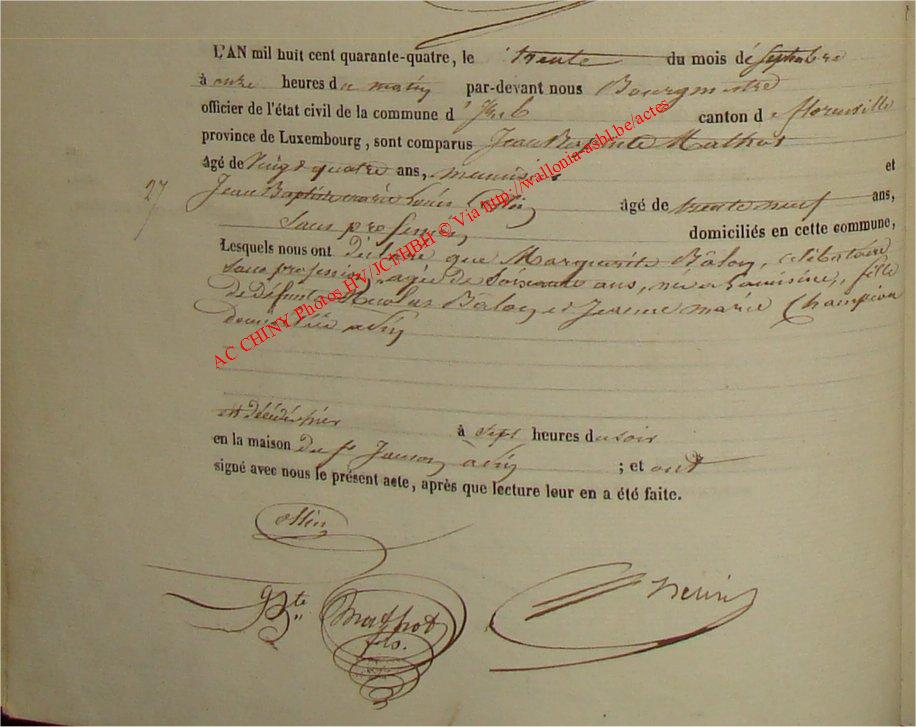 L'AN mil huit cent quarante-quatre, le trente du mois de Septembre
à onze heures du matin par-devant nous Bourgmestre
officier de l'état civil de la commune d' canton de florenville
province de Luxembourg, sont comparus Jean Baptiste Mathot
âgé de Vingt quatre ans, et
27
Jean Baptiste marie Louis âgé de trente neuf ans,
Sans profession domiciliés en cette commune,
Lesquels nous ont déclaré que Marguerite Balon, célibataire
Sans profession, agée de Soixante ans, née a fille
de défunt Nicolas Balon et Jeanne marie Champion
AC CHINY Photos HV/JCT/HBH © Via http://wallonia-asbl.be/actes
est décédée hier à Sept heures du soir
en la maison du Sr ; et ont
signé avec nous le présent acte, après que lecture leur en a été faite.
Ollin
Bte Mathot
fils.